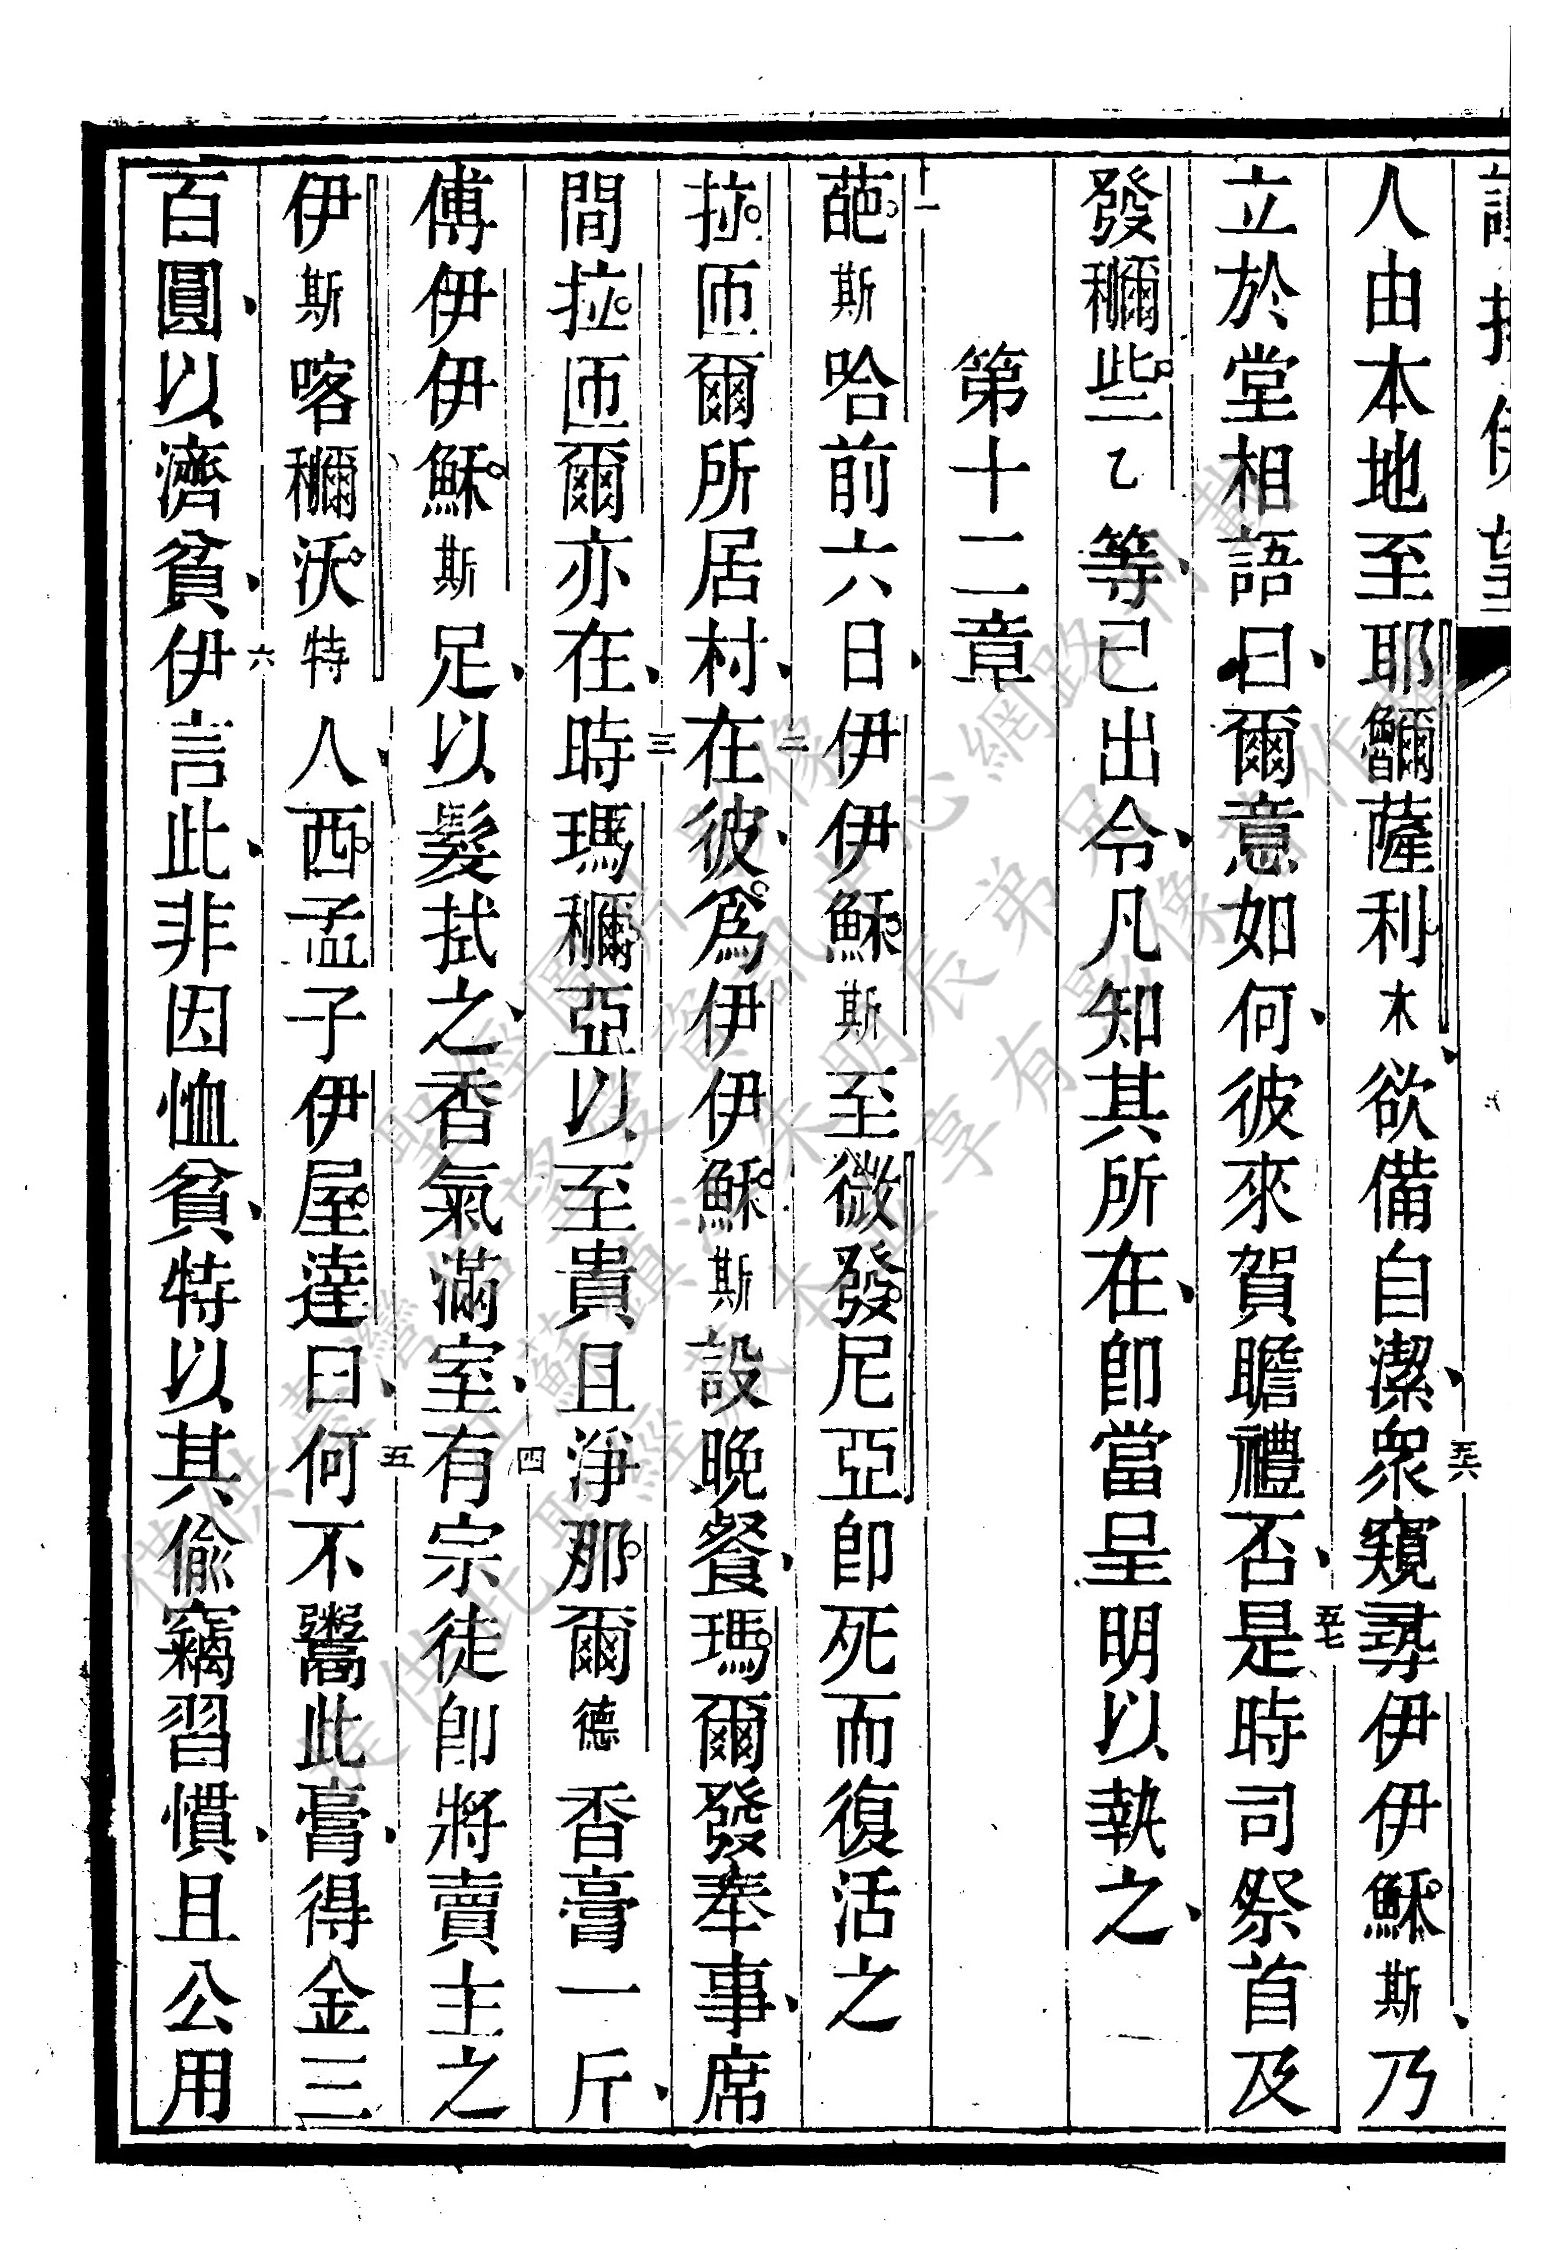 人由本地至耶𩹢薩利木欲備自潔衆窺尋伊伊穌斯乃
五六
立於堂相語曰爾意如何彼來賀瞻禮否是時司祭首及
五七
發穪些乙等已出令凡知其所在卽當呈明以執之
第十二章
一
葩斯哈前六日伊伊穌斯至微發尼亞卽死而復活之
拉匝爾所居村在彼爲伊伊穌斯設晚餐瑪爾發奉事席
二
間拉匝爾亦在時瑪穪亞以至貴且淨那爾德香膏一斤
三
傅伊伊穌斯足以髮拭之香氣滿室有宗徒卽將賣主之
四
伊斯喀穪沃特人西孟子伊屋達曰何不鬻此膏得金三
五
百圓以濟貧伊言此非因恤貧特以其偸竊習慣且公用
六